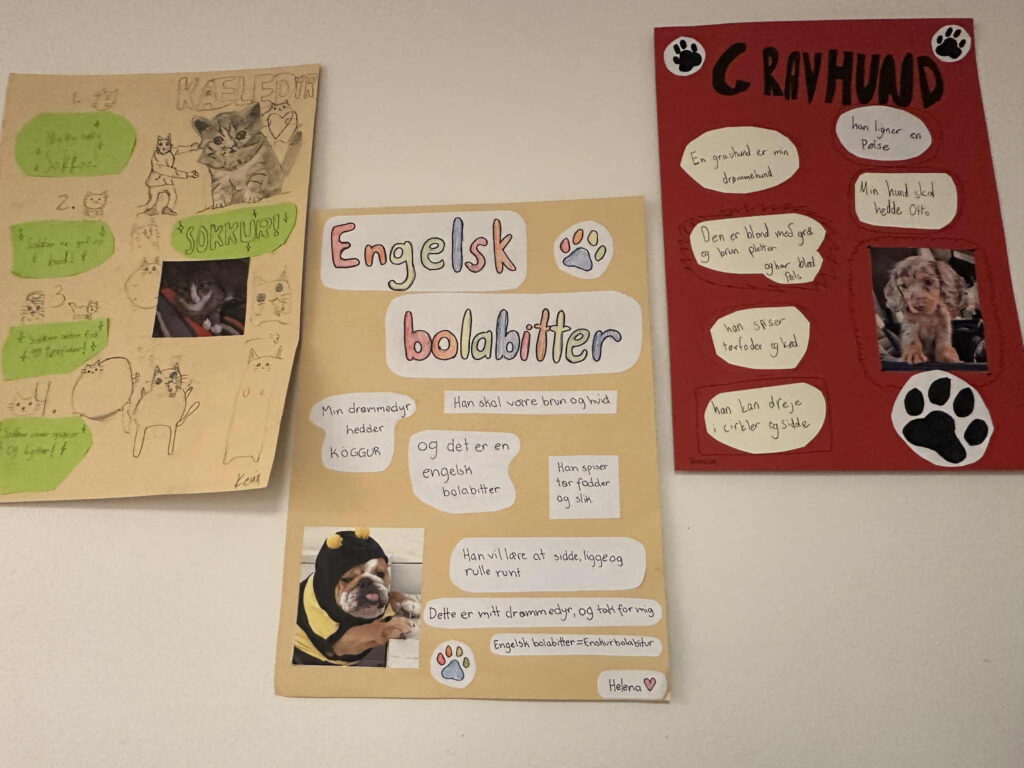 KÆLEDYR
1.
Sokka!
2.
SOKKUR!
3.
4.
Kevin
Engelsk
bolabitter
Min drømmedyr
hedder
KÖGGUR
Han skal være brun og hvid
og det er en
engelsk
bolabitter
Han spiser
tør fodder
og slik
Han vil lære at sidde, ligge og
rulle runt
Dette er mitt drømmedyr, og tak for mig
Engelsk bolabitter=Enskurbolabítur
Helena
GRAVHUND
han ligner en
Pølse
En gravhund er min
drømmehund
Min hund skal
hedde Otto
Den er bland med grå
og brun pletter
og har blød
pels
han spiser
tørfoder og kød
han kan dreje
i cirkler og sidde